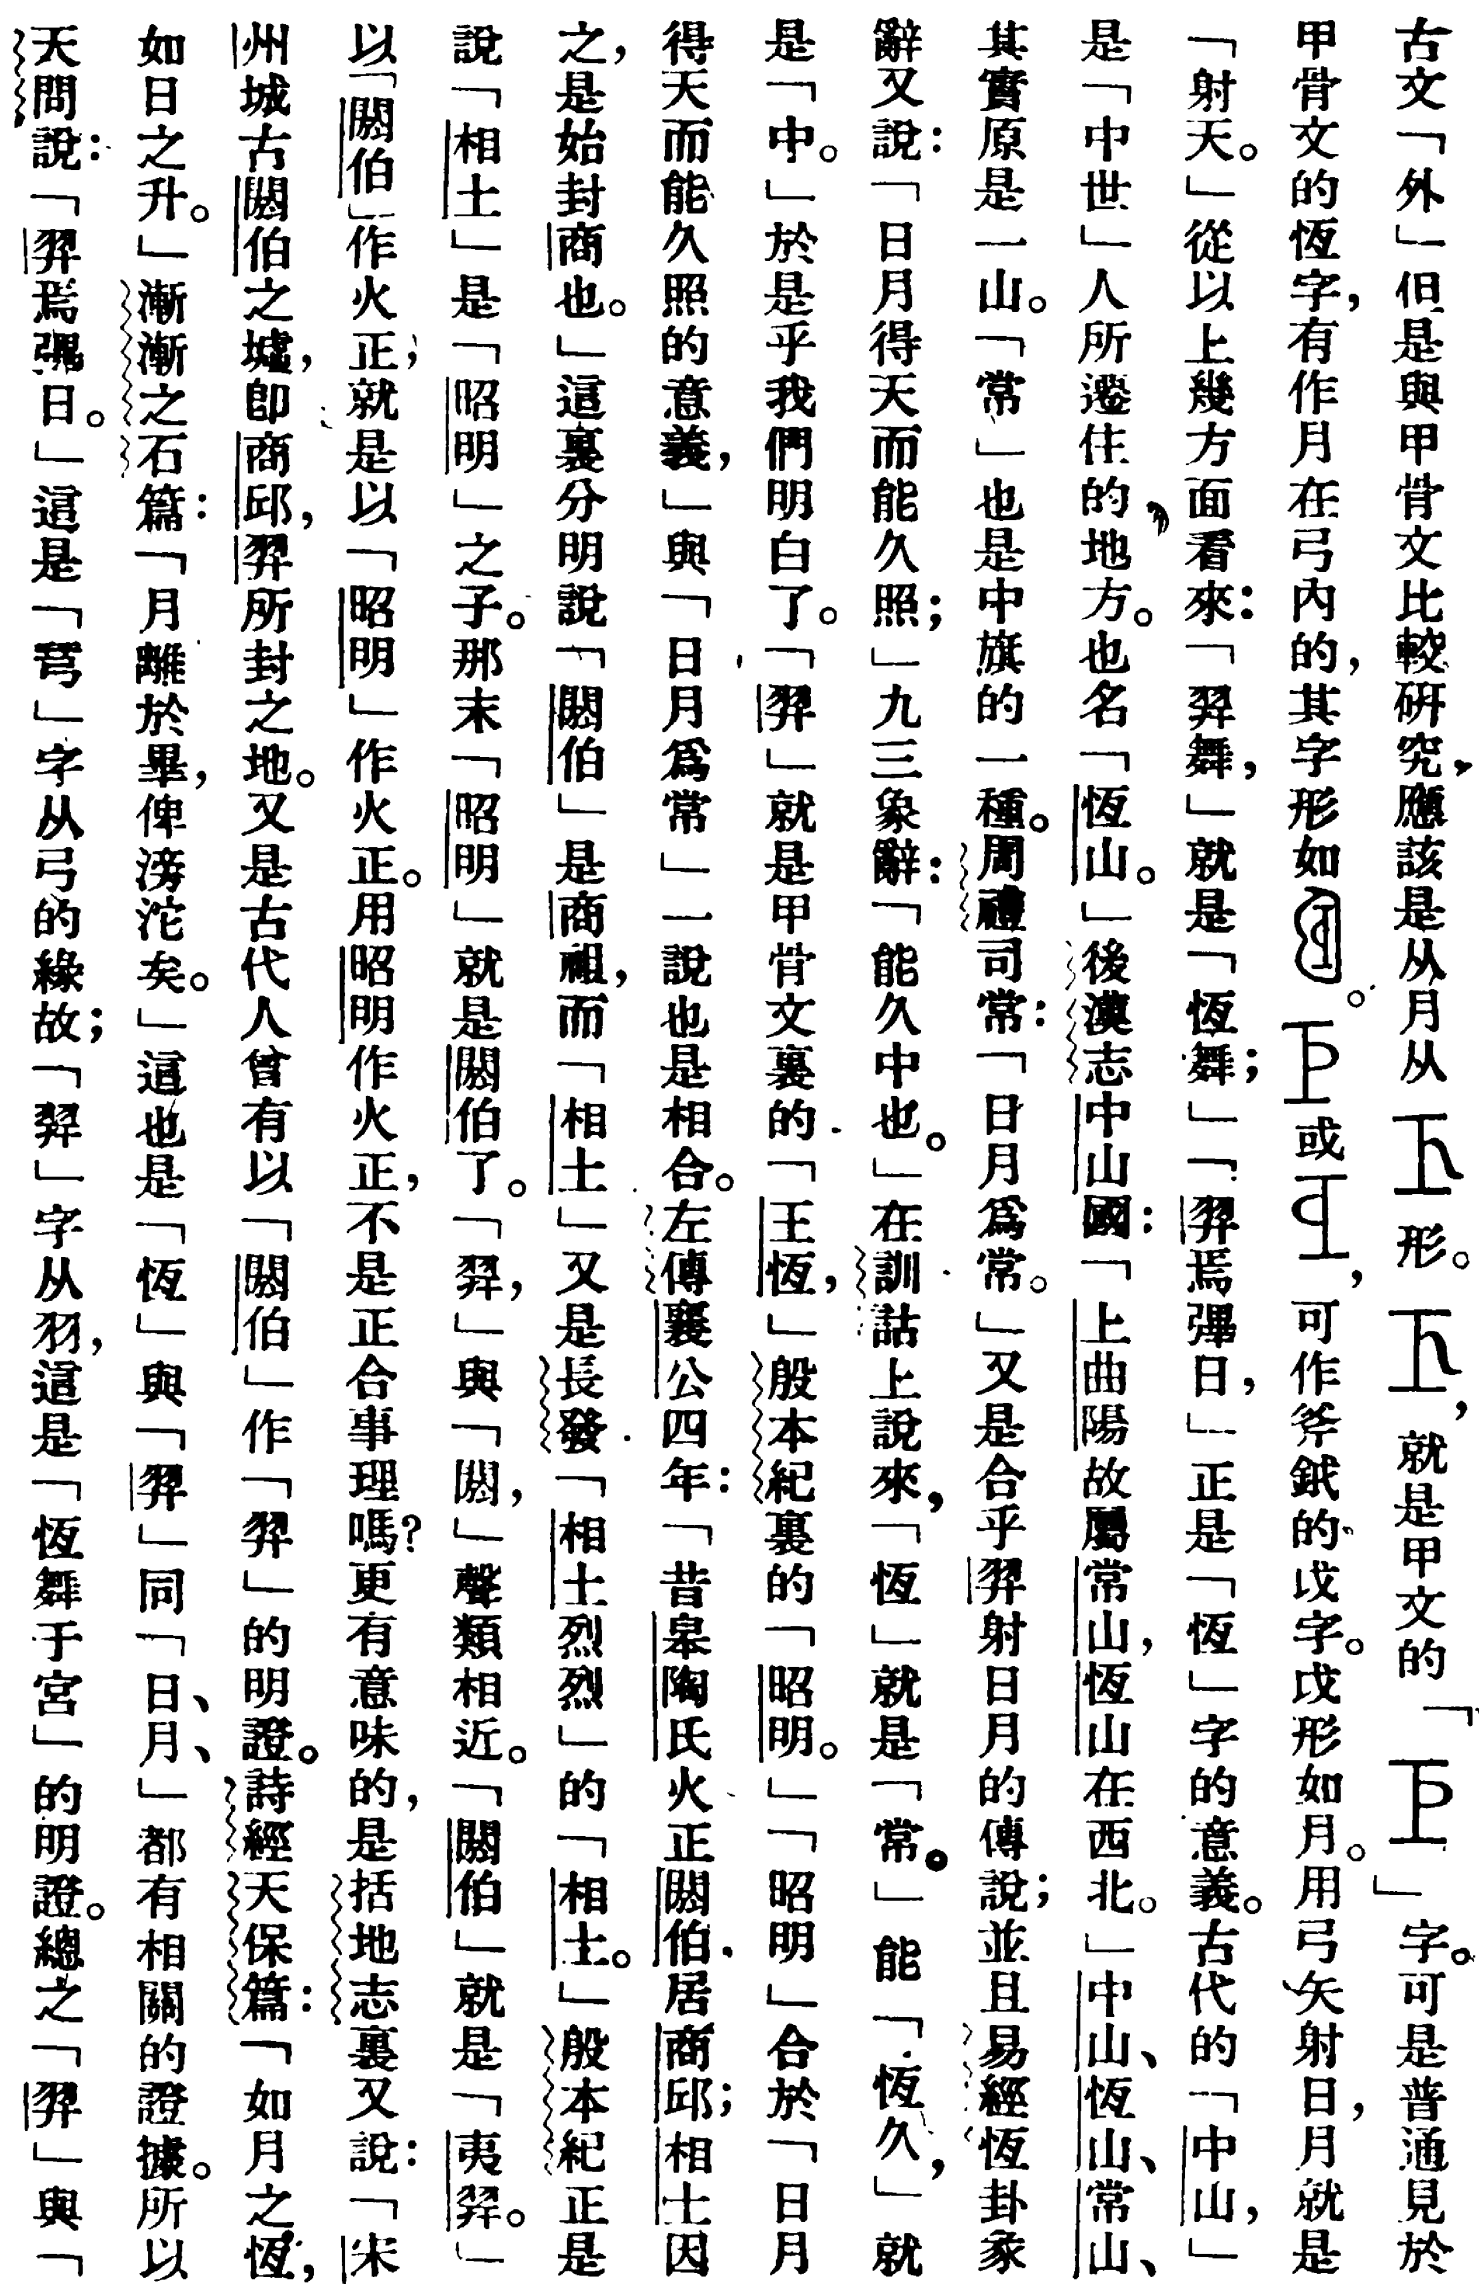 古文「外」但是與甲骨文比較研究，應該是从月从形。，就是甲文的「」字。可是普通見於
甲骨文的恆字，有作月在弓內的，其字形如。或，可作斧鉞的戉字。戉形如月。用弓矢射日，月就是
「射天。」從以上幾方面看來：「羿舞，」就是「恆舞；」「羿焉彈日，」正是「恆」字的意義。古代的「中山，」
是「中世」人所遷住的地方。也名「恆山。」後漢志中山國：「上曲陽故屬常山，恆山在西北。」中山、恆山、常山、
其實原是一山。「常」也是中旗的一種。周禮司常：「日月爲常。」又是合乎羿射日月的傳說；並且易經恆卦彖
辭又說：「日月得天而能久照；」九三象辭：「能久中也。」在訓詁上說來，「恆」就是「常。」能「恆久，」就
是「中。」於是乎我們明白了。「羿」就是甲骨文裏的「王恆，」殷本紀裏的「昭明。」「昭明」合於「日月
得天而能久照的意義，」與「日月爲常」一說也是相合。左傳襄公四年：「昔皋陶氏火正閼伯居商邱；相土因
之，是始封商也。」這裏分明說「閼伯」是商祖，而「相土」又是長發「相土烈烈」的「相土。」殷本紀正是
說「相土」是「昭明」之子。那末「昭明」就是閼伯了。「羿，」與「閼，」聲類相近。「閼伯」就是「夷羿。」
以「閼伯」作火正，就是以「昭明」作火正。用昭明作火正，不是正合事理嗎？更有意味的，是括地志裏又說：「宋
州城古閼伯之墟，卽商邱，羿所封之地。又是古代人曾有以「閼伯」作「羿」的明證。詩經天保篇：「如月之恆，
如日之升。」漸漸之石篇：「月離於畢，俾滂沱矣。」這也是「恆」與「羿」同「日、月、」都有相關的證據。所以
天問說：「羿焉彃日。」這是「𢎗」字从弓的緣故；「羿」字从羽，這是「恆舞于宮」的明證。總之「羿」與「